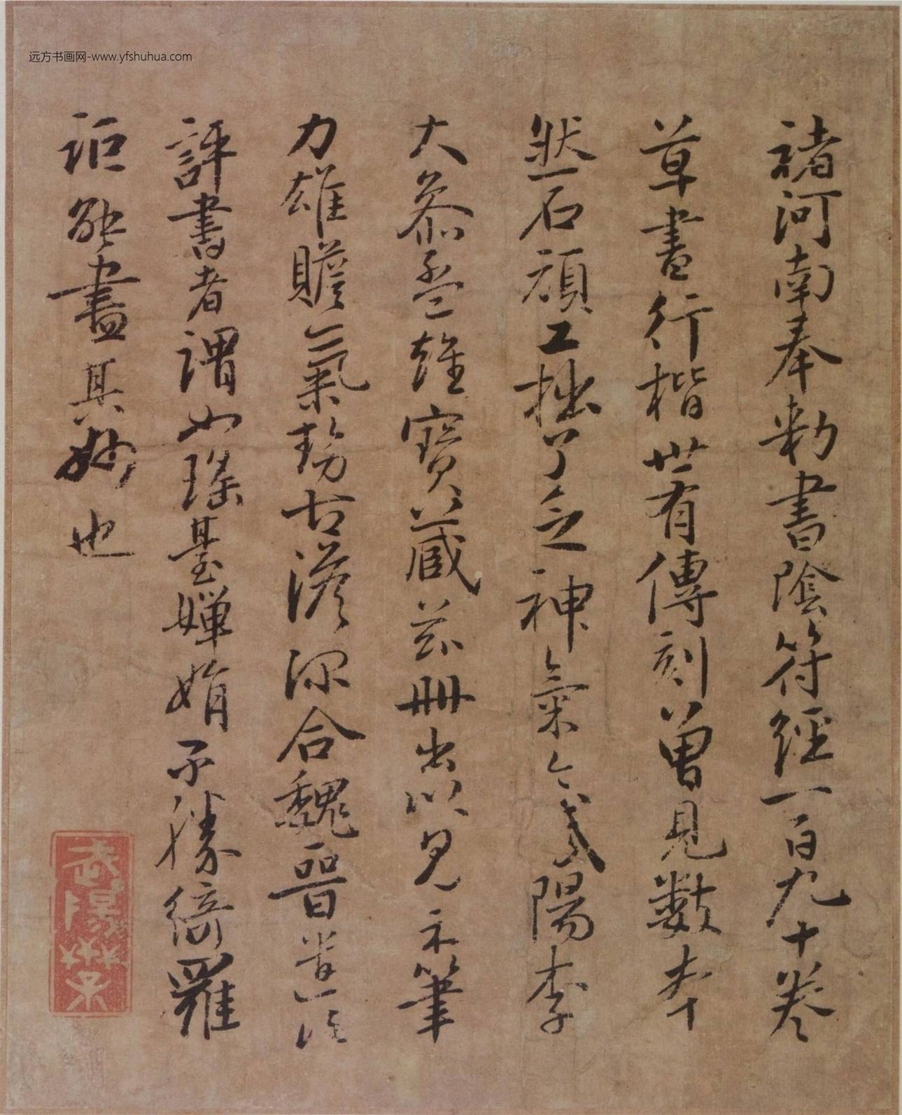 远方书画网-www.yfshuhua.com
褚河南奉勑書陰符經一百九十卷
草書行楷世有傳刻曾見數本
然石頑工拙了乏神氣今弋陽李
大参孟雄寶藏兹冊出以見示筆
力雄贍氣勢古澹深合魏晉遺法
評書者謂如瑤臺嬋娟不勝綺羅
詎能盡其妙也